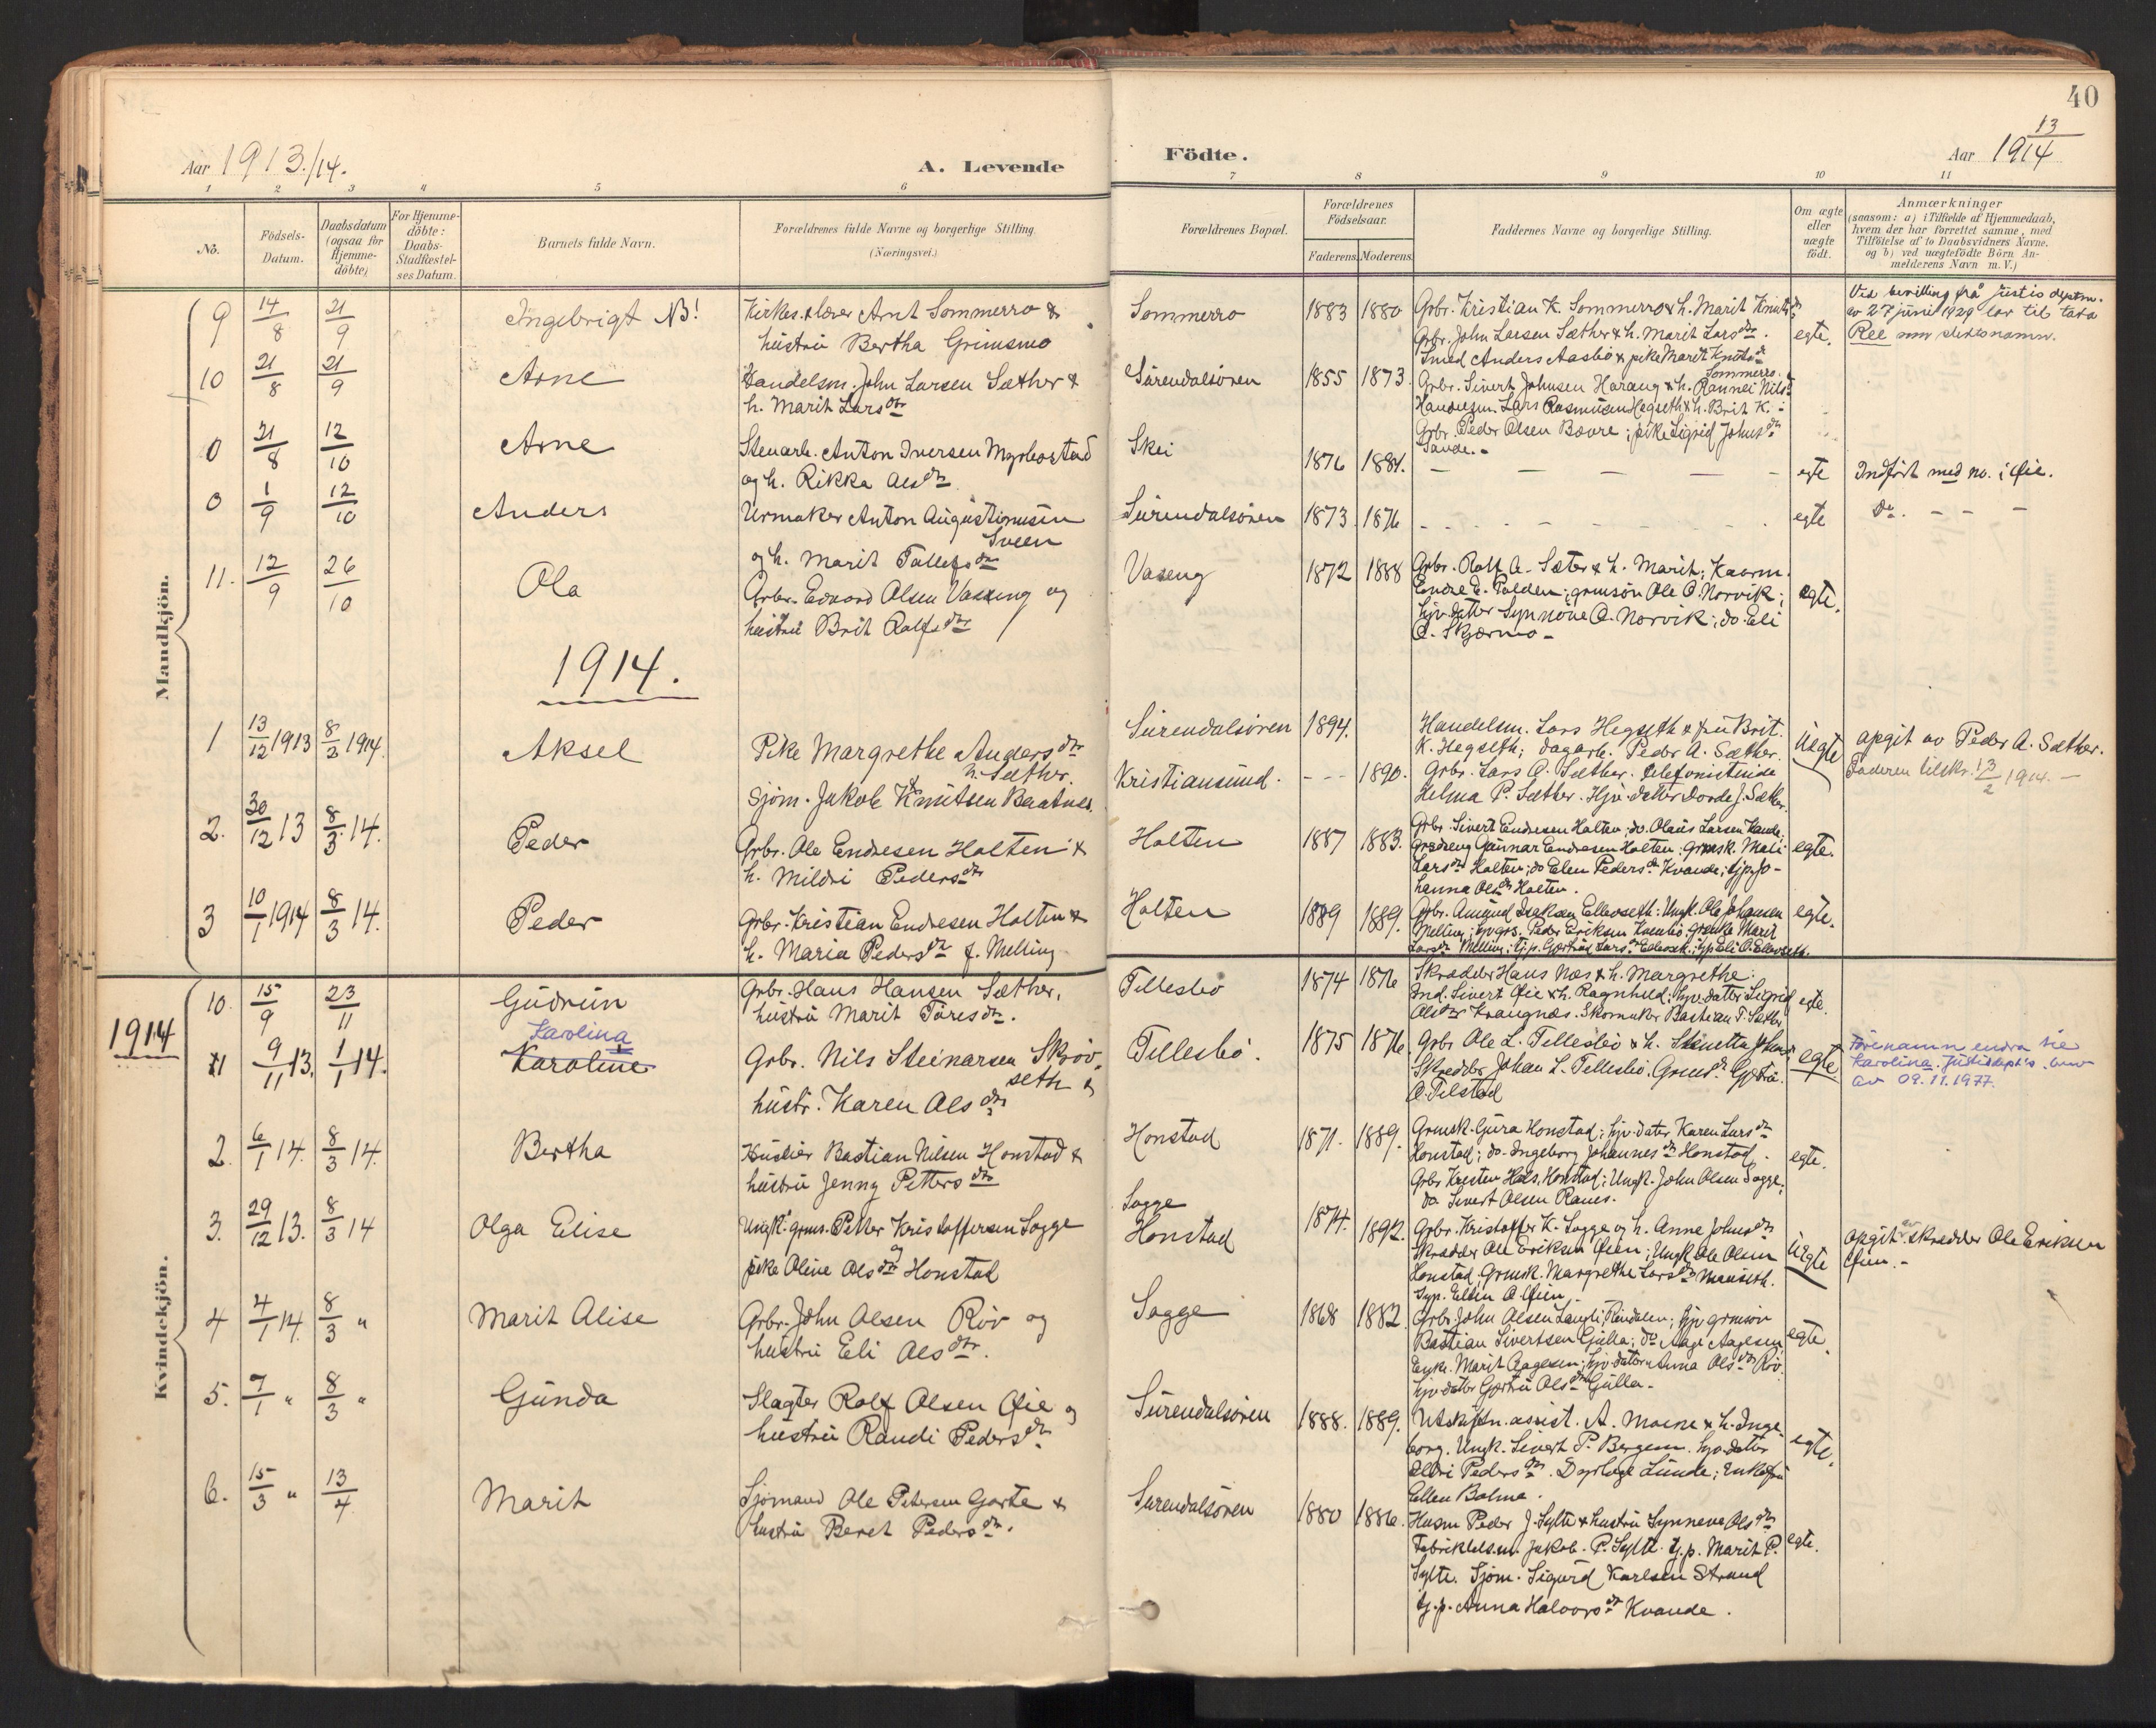 40
Aar 1913./14.
A. Levende
Födte.
Aar 13/1914
1 2 3 4 5 6 7 8 9 10 11
No.
Födsels-
Datum.
Daabsdatum
(ogsaa for
Hjemme-
döbte)
For Hjemme-
döbte:
Daabs-
Stadfæstel-
ses Datum.
Barnets fulde Navn.
Forældrenes fulde Navne og borgerlige Stilling
(Næringsvei.)
Forældrenes Bopæl.
Forældrenes
Födselsaar.
Faderens. Moderens.
Faddernes Navne og borgerlige Stilling.
Om ægte
eller
uægte
födt.
Anmærkninger
(saasom: a) i Tilfælde af Hjemmedaab,
hvem der har forrettet samme, med
Tilföielse af to Daabsvidners Navne.
og b) ved uægtefödte Börn An-
melderens Navn m. V.)
Mandkjön.
9 14/8 21/9 Ingebrigt NB!
Kirkes. & lærer Arnt Sommerro &
hustru Bertha Grimsmo
Sommerro 1883 1880
Grbr. Kristian K. Sommerro & h. Marit Knutsdr
Grbr. John Larsen Sæther & h. Marit Larsdtr.
Smed Anders Aasbö & pike Marit Knutsdr
Sommerro.
egte.
Ved bevilling frå Justis deptm.
av 27 juni 1929 lov til taka
Ree som slektsnamn.
10 21/8 21/9 Arne
Handelsm. John Larsen Sæther &
h. Marit Larsdtr
Surendalsören 1855 1873.
Grbr. Sivert Johnsen Harang & h. Rannei Nilsd
Handelsm. Lars Rasmusen Hegseth & h. Brit K. -
Grbr. Peder Olsen Bævre; pike Sigrid Johnsdtr
Sande. -
0 21/8 12/10 Arne
Stenarb. Anton Iversen Myrbostad
og h. Rikka Olsdtr
Skei 1876 1884. - - - -
egte Indfört med no. i Öie.
0 1/9 12/10 Anders
Urmaker Anton Augustinusen
Sveen
og h. Marit Tollefsdtr
Surendalsören 1873. 1876 - - - - - - -
egte Do. - - -
11. 12/9 26/10 Ola
Grbr. Edvard Olsen Vaseng og
hustru Brit Rolfsdtr
Vaseng 1872 1888
Grbr. Rolf A. Sæter & h. Marit; Kaarm.
Endre E. Talden; grmsön Ole O. Norvik;
hjv. datter Synnöve O. Norvik; do. Eli
O. Skjærmo -
egte.
1914.
1 13/12 1913 8/2 1914. Aksel
Pike Margrethe Andersdtr
n. Sæther.
&
Sjöm. Jakob Knutsen Baatnes.
Surendalsören 1894.
Kristiansund. - - - 1890.
Handelsm. Lars Hegseth & fru Brit.
K. Hegseth; dagarb. Peder A. Sæther.
Grbr. Lars A. Sæther. telefonistinde
Helma P. Sæther. Hjv. datter Dorde J. Sæther.
Uegte
opgit av Peder A. Sæther.
Faderen tilskr. 13/2 1914. -
2. 30/12 13 8/3 14. Peder
Grbr. Ole Endresen Holten &
h. Mildri Pedersdtr
Holten 1887 1883.
Grbr. Sivert Endresen Holten; do. Olaus Larsen Kande;
Grædreng Gunnar Endresen Holten; Grmsk. Mali
Larsdtr Holten; do Elen Pedersdtr Kvande; tjp. Jo-
hanna Olsdtr Holten.
egte.
3 10/1 1914 8/3 14. Peder
Grbr. Kristian Endresen Holten &
h. Maria Pedersdtr f. Melling
Holten 1889 1889.
Grbr. Amund Isaksen Ellevseth; Ungk. Ole Johansen
egte.
1914
Kvindekjön.
10. 15/9 23/11 Gudrun
Grbr. Hans Hansen Sæther,
hustru Marit Toresdtr.
Tellesbö 1874 1876
Skrædder Hans Næs & h. Margrethe.
Ind. Sivert Öie & h. Ragnhild; hjv. datter Sigrid
Olsdtr Krangnæs. Skomaker Bastian T. Sæther
egte.
Karolina
11 9/11 13. 1/1 14. Karoline
Grbr. Nils Steinarsen Skröv-
seth &
hustr. Karen Olsdtr
Tellesbö. 1875 1876
Grbr. Ole L. Tellesbö & h. Stinetta Johansd
Skrædder Johan L. Tellesbö. Grmsdr Gjertru
O. Telstad
egte
Förenamn endra til
Karolina. Justisdept's brev
av 09.11.1977.
2. 6/1 14. 8/3 14. Bertha
Husbier Bastian Nilsen Honstad &
hustru Jenny Pettersdtr
Honstad 1871. 1889.
Grmsk. Gura Honstad; hjv. dater Karen Larsdtr
Honstad; do. Ingeborg Johannesdtr Honstad.
Grbr. Kristen Hals. Honstad; Ungk. John Olsen Sogge;
do. Sivert Olsen Ranes.
egte.
3. 29/12 13. 8/3 14 Olga Elise
Ungk. grms. Petter Kristoffersen Sogge
og
pike Oline Olsdtr Honstad
Sogge
Honstad 1874. 1892.
Grbr. Kristoffer K. Sogge og h. Anne Johnsdtr
Skrædder Ole Eriksen Öien; Ungk. Ole Olsen
Honstad, Grmsk. Margrethe Larsdtr Mauseth.
Syp. Eldin O. Öien.
Uegte
opgit av skredder Ole Eriksen
Öien. -
4 4/1 14. 8/3 " Marit Alise
Grbr. John Olsen Röv og
hustru Eli Olsdtr.
Sogge 1868 1882.
Grbr. John Olsen Langli, Rindalen; hjv. grmsön
Bastian Sivertsen Gulla; do. Aage Aagesen;
Enke. Marit Aagesen; hjv. dater Anna Olsdtr Röv.
hjv. dater Gjertru Olsdtr Gulla.
egte.
5. 7/1 " 8/3 " Gunda
Slagter Rolf Olsen Öie og
hustru Randi Pedersdtr.
Surendalsören 1888. 1889.
Utskiftn. assist. A. Moene & h. Inge-
borg. Ungk. Sivert P. Bergem. hjv. dater
Eldri Pedersdtr. Dyrlæge Lunde; Enkefru
Ellen Bolme.
egte.
6. 15/3 " 13/4 Marit
Sjömand Ole Petersen Garte &
hustru Beret Pedersdtr.
Surendalsören 1880 1886.
Husm. Peder J. Sylte & hustru Synneve Olsdtr
Fabrikbels.m. Jakob. P. Sylte. tj.p. Marit P.
Sylte. Sjöm. Sigurd Karlsen Strand
tj.p. Anna Halvorsdtr Kvande.
egte.